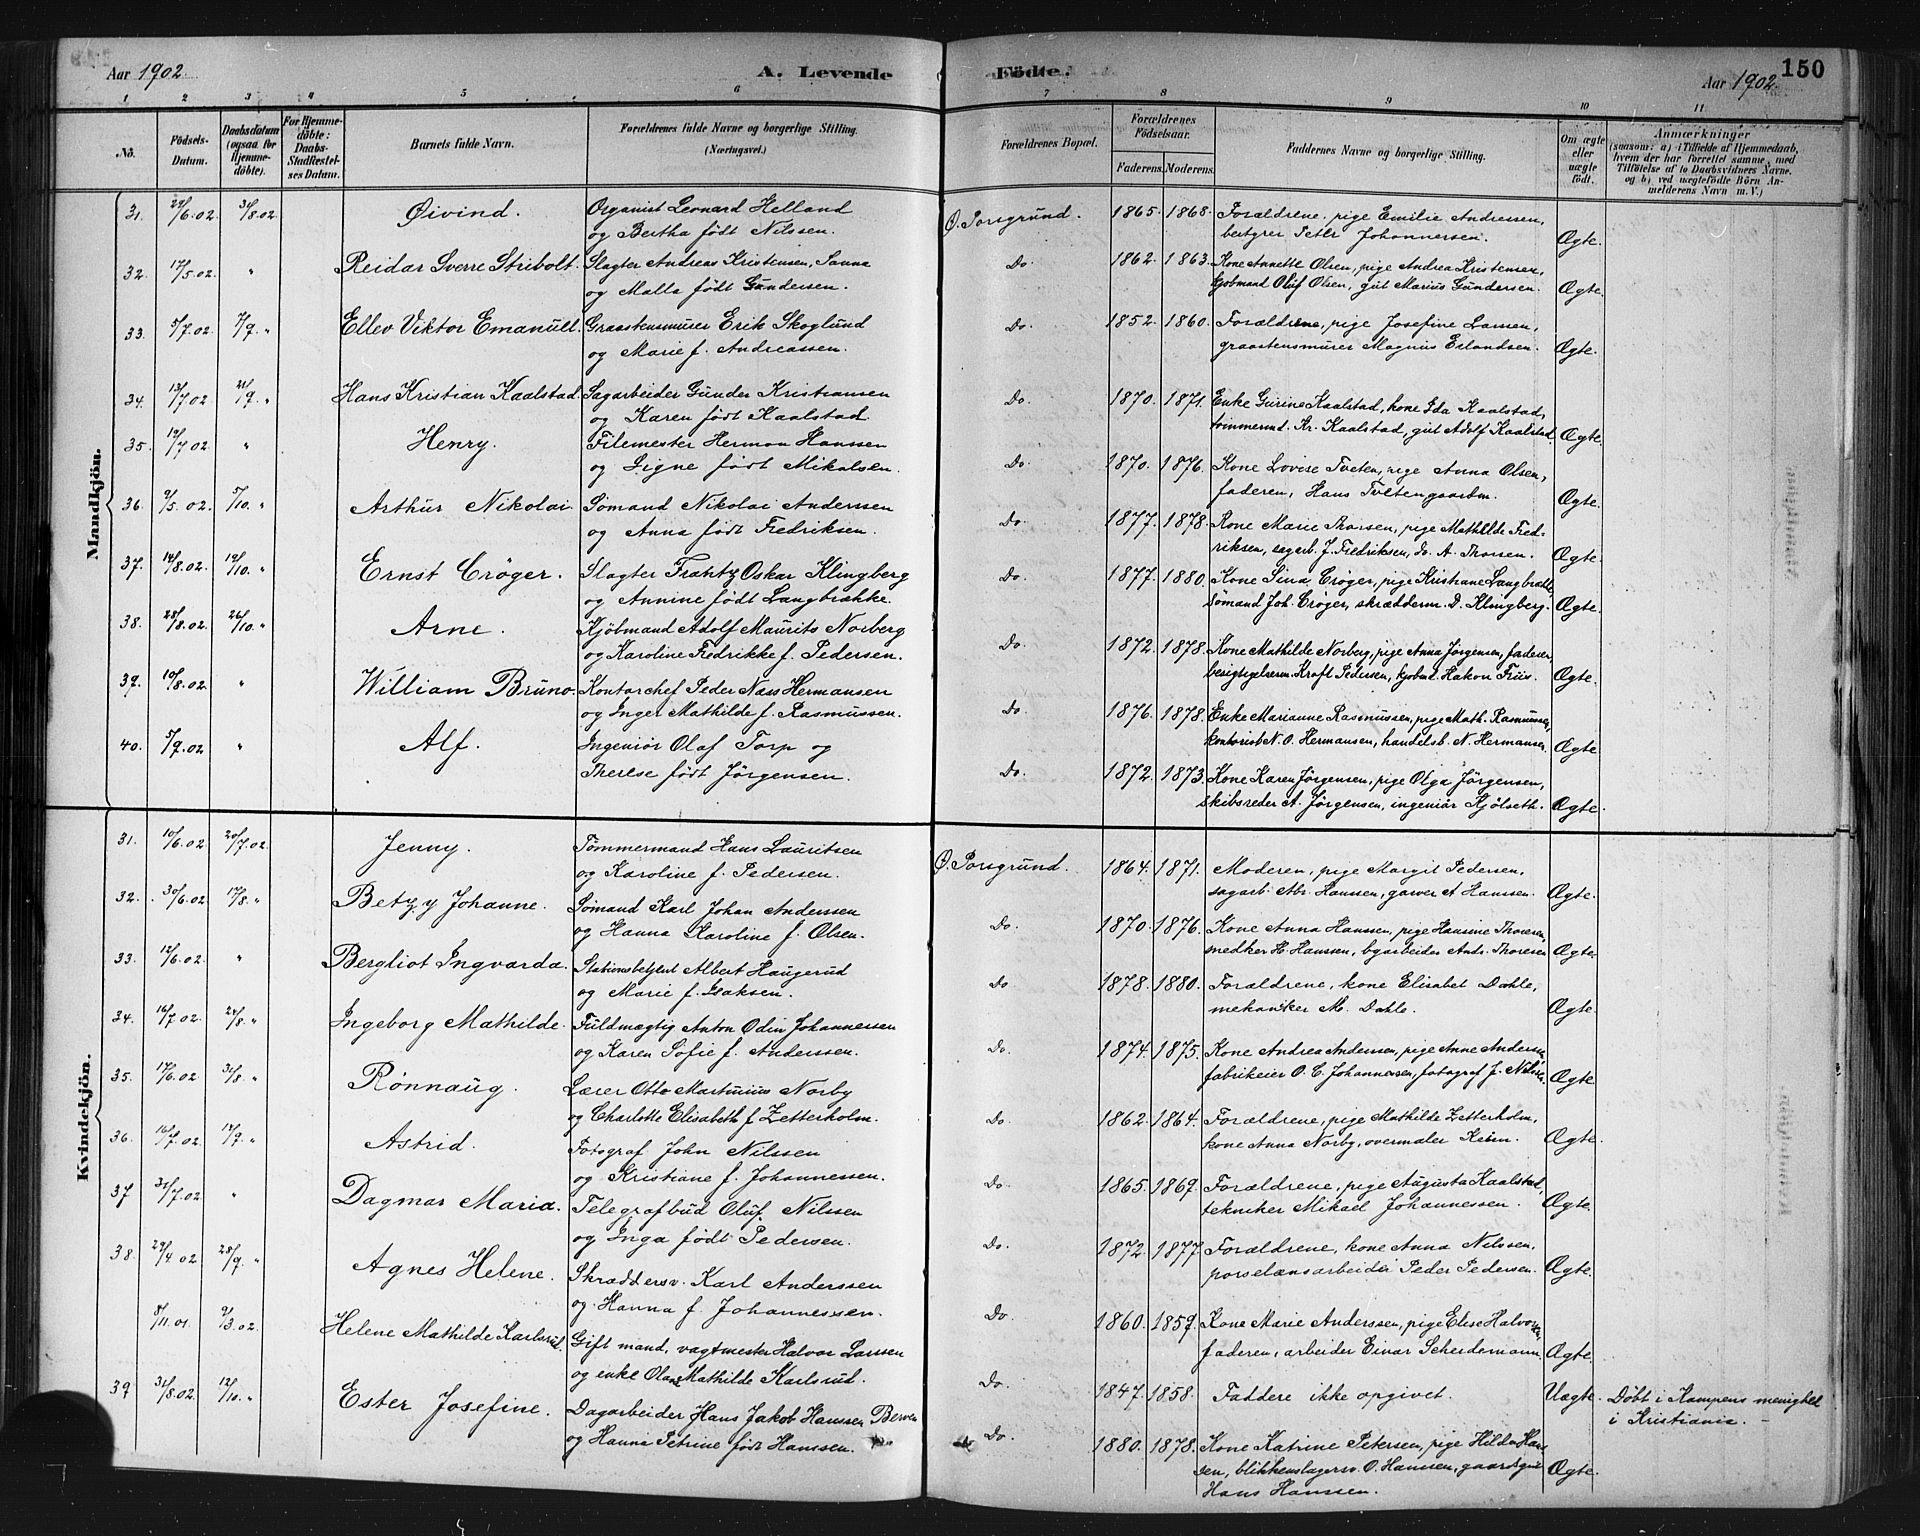 Aar 1902.
A. Levende Födte.
Aar 1902.
150
1 2 3 4 5 6 7 8 9 10 11
No.
Födsels-Datum.
Daabsdatum (ogsaa for Hjemmedöbte).
For Hjemmedöbte: Daabs-Stadfæstelses Datum.
Barnets fulde Navn.
Forældrenes fulde Navne og borgerlige Stilling. (Næringsvei.)
Forældrenes Bopæl.
Forældrenes Födselsaar.
Faderens. Moderens.
Faddernes Navne og borgerlige Stilling.
Om ægte eller uægte födt.
Anmærkninger
(saasom: a) i Tilfælde af Hjemmedaab, hvem der har forrettet samme, med Tilföielse af to Daabsvidners Navne. og b) ved uægtefödte Börn Anmelderens Navn m. V.)
Mandkjön.
31. 29/6.02 31/8.02 Øivind. Organist Leonard Helland Ø. Porsgrund. 1865. 1868. Forældrene, pige Emilie Andressen,
og Bertha født Nilssen. Petter Johannersen. Ægte.
32. 17/5.02 " Reidar Sverre Stribolt. Slagter Andreas Kristensen, Sanna Do 1862. 1863. Kone Annette Olsen, pige Andrea Kristensen,
og Malla født Gundersen. kjøbmand Oluf Olsen, gut Marius Gundersen. Ægte.
33. 5/7.02 7/9. " Ellev Viktor Emanuel. Graastensmurer Erik Skoglund Do 1852. 1860. Forældrene, pige Josefine Larsen,
og Marie f. Andreassen. graastensmurer Magnus Erlandsen. Ægte.
34. 13/7.02 21/9. " Hans Kristian Kaalstad. Sagarbeider Gunder Kristiansen Do 1870. 1871. Enke Gurine Kaalstad, kone Ida Kaalstad,
og Karen født Kaalstad tømmermd. Kr. Kaalstad, gut Adolf Kaalstad Ægte.
35. 19/7.02 " Henry. Filemester Herman Hanssen Do. 1870. 1876. Kone Lovise Tveten, pige Anna Olsen,
og Signe født Mikalsen. faderen, Hans Tvetengaarden. Ægte.
36. 9/5.02. 5/10. " Arthur Nikolai Sømand Nikolai Anderssen Do. 1877. 1878. Kone Marie Thorsen, pige Mathilde Fred-
og Anna født Fredriksen. riksen, sagarb. J. Fredriksen, do. A. Thorsen. Ægte.
37. 14/8.02. 19/10. " Ernst Crøger. Slagter Frantz Oskar Klingberg Do. 1877. 1880. Kone Sina Crøger, pige Kristiane Langbrække
og Annine født Langbrække. sømand Joh. Crøger, skrædderm. D. Klingberg. Ægte.
38. 28/8.02. 26/10. " Arne. Kjøbmand Adolf Maurits Norberg Do. 1872. 1878. Kone Mathilde Norberg, pige Anna Jørgensen, faderen,
og Karoline Fredrikke f. Pedersen. Kraft Pedersen, kjøbmd. Hakon Friis. Ægte.
39. 10/8.02. " William Bruno. Kontorchef Peder Næss Hermansen Do. 1876. 1878. Enke Marianne Rasmussen, pige Math. Rasmussen,
og Inger Mathilde f. Rasmussen. kontorist N. O. Hermansen, handelsb. N. Hermansen. Ægte.
40. 5/9.02 " Alf. Ingeniør Olaf Torp og Do. 1872. 1873. Kone Karen Jørgensen, pige Olga Jørgensen,
Therese født Jörgensen. skibsreder A. Jørgensen, ingeniør Kjølseth. Ægte.
Kvindekjön.
31. 10/6.02 20/7.02 Jenny. Tømmermand Hans Lauritsen Ø. Porsgrund. 1864. 1871. Moderen, pige Margit Pedersen,
og Karoline f. Pedersen. sagarb. Abr. Hanssen, garver A Hanssen. Ægte.
32. 30/6.02 17/8. " Betzy Johanne. Sømand Karl Johan Anderssen Do. 1870. 1876. Kone Anna Hanssen, pige Hansine Thoresen,
og Hanna Karoline f. Olsen. H. Hanssen, byarbeider Ands. Thoresen Ægte.
33. 12/6.02. " Bergliot Ingvarda. Stationsbetjent Albert Haugerud Do 1878. 1880. Forældrene, kone Elisabet Dahle,
og Marie f. Isaksen. mekaniker M. Dahle. Ægte.
34. 16/7.02 24/8. " Ingeborg Mathilde. Fuldmægtig Anton Odin Johannessen Do. 1874. 1875. Kone Andrea Andersen, pige Anne Andersen
og Karen Sofie f. Anderssen. fabrikeier O. C. Johannersen, fotograf J. Nilsen. Ægte.
35. 17/6.02 31/8. " Rønnaug. Lærer Otto Martinius Norby Do. 1862. 1864. Forældrene, pige Mathilde Zetterholm,
og Charlotte Elisabeth f. Zetterholm. kone Anna Norby, overmaler Keim. Ægte.
36. 16/7.02. 14/9. " Astrid. Fotograf John Nilssen Do. 1865. 1869. Forældrene, pige Augusta Kaalstad,
og Kristiane f. Johannessen. tekniker Mikael Johannessen. Ægte.
37 31/7.02 " Dagmar Maria. Telegrafbud Oluf Nilssen Do. 1872. 1877. Forældrene, kone Anna Nilssen,
og Inga født Pedersen. porselænsarbeider Peder Pedersen. Ægte.
38. 29/4 02 28/9. " Agnes Helene. Skræddersv. Karl Anderssen Do. 1860. 1859. Kone Marie Anderssen, pige Elise Halvorsen,
og Hanna f. Johannessen. faderen, arbeider Einar Scheidemann. Ægte.
8/11.01. 9/3.02. Helene Mathilde Karlsrud. Gift mand, vagtmester Halvor Larssen Do. 1847. 1858. Faddere ikke opgivet. Uægte. Døbt i Kampens menighet
og enke Olane Mathilde Karlsrud. i Kristiania.
39 31/8.02 12/10. " Ester Josefine. Dagarbeider Hans Jakob Hanssen Berven Do. 1880. 1878. Kone Katrine Petersen, pige Hilda Hans-
og Hanna Petrine født Hanssen. sen, blikkenslagersv. O. Hanssen, gaardsgut
Hans Hanssen. Ægte.